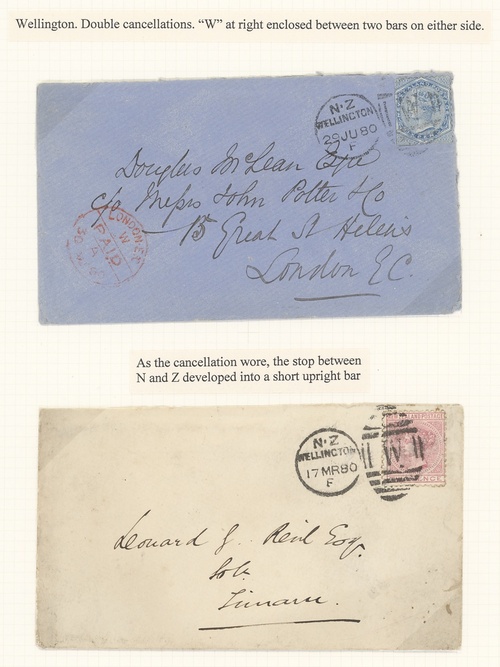 Wellington. Double cancellations. “W” at right enclosed between two bars on either side.
N·Z
WELLINGTON
29 JU 80
F
Douglas McLean Esqre
c/o Messrs John Potter & Co
15 Great St Helens
London E.C.
LONDON E.C
W
PAID
A
30
80
As the cancellation wore, the stop between
N and Z developed into a short upright bar
N·Z
WELLINGTON
17 MR 80
F
W
Leonard G. Reid Esq.
Solr.
Timaru.